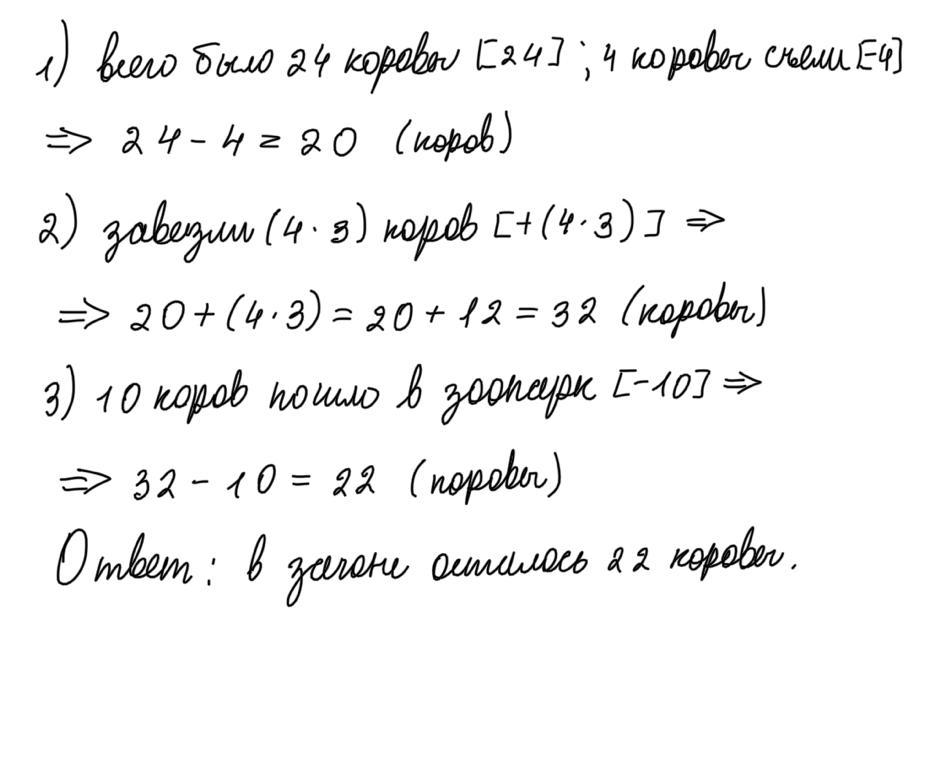 1) всего было 24 коровы [24]; 4 коровы съели [-4]
⇒ 24 - 4 = 20 (коров)
2) завезли (4 · 3) коров [+(4 · 3)] ⇒
⇒ 20 + (4 · 3) = 20 + 12 = 32 (коровы)
3) 10 коров пошло в зоопарк [-10] ⇒
⇒ 32 - 10 = 22 (коровы)
Ответ: в загоне осталось 22 коровы.